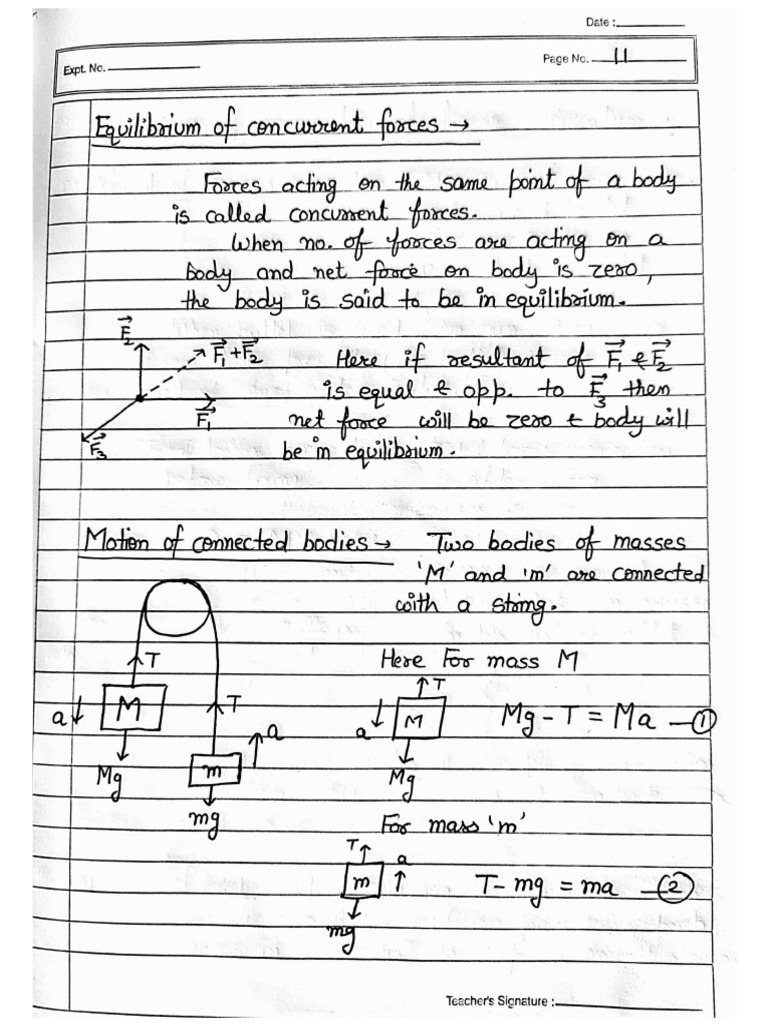 Date :
Expt. No.
Page No. 11
Equilibrium of concurrent forces →
Forces acting on the same point of a body
is called concurrent forces.
When no. of forces are acting on a
body and net force on body is zero,
the body is said to be in equilibrium.
F⃗₂
F⃗₁+F⃗₂
F⃗₁
F⃗₃
Here if resultant of F⃗₁ & F⃗₂
is equal & opp. to F⃗₃ then
net force will be zero & body will
be in equilibrium.
Motion of connected bodies → Two bodies of masses
'M' and 'm' are connected
with a string.
Here For mass M
T
T
a M
T
a
m
Mg
mg
T
a M
Mg
Mg - T = Ma —①
For mass 'm'
T
a
m
mg
T - mg = ma —②
Teacher's Signature :